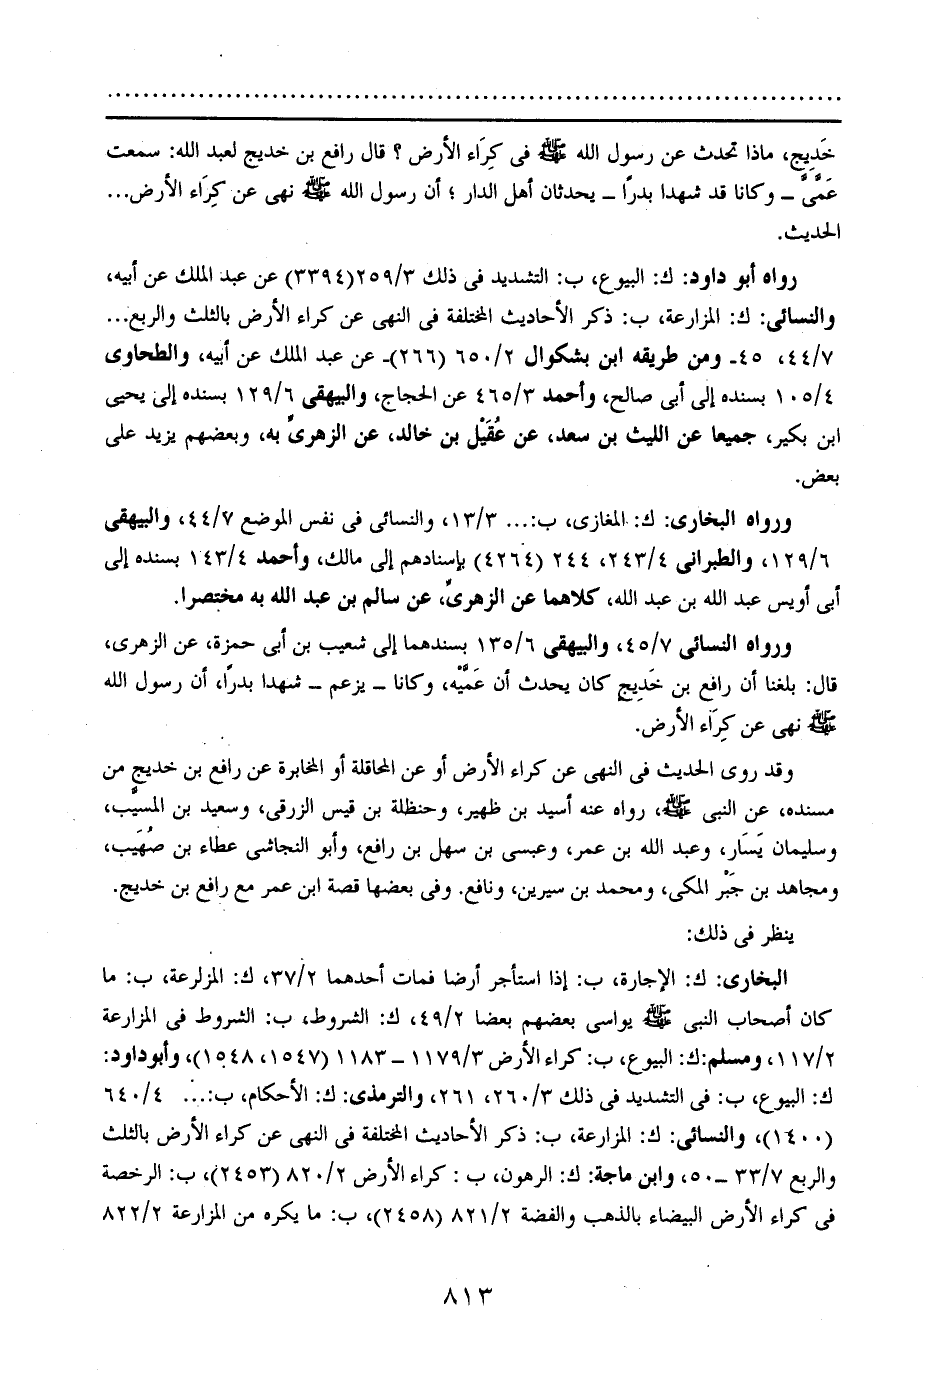 ................................................................................
خَدِيج، ماذا تحدث عن رسول الله ﷺ فى كِرَاء الأرض ؟ قال رافع بن خديج لعبد الله: سمعت
عَمَّىَّ – وكانا قد شهدا بدرًا – يحدثان أهل الدار ؛ أن رسول الله ﷺ نهى عن كِرَاء الأرض...
الحديث.
رواه أبو داود: ك: البيوع، ب: التشديد فى ذلك ٢٥٩/٣(٣٣٩٤) عن عبد الملك عن أبيه،
والنسائى: ك: المزارعة، ب: ذكر الأحاديث المختلفة فى النهى عن كراء الأرض بالثلث والربع...
٤٤/٧، ٤٥- ومن طريقه ابن بشكوال ٦٥٠/٢ (٢٦٦)- عن عبد الملك عن أبيه، والطحاوى
١٠٥/٤ بسنده إلى أبى صالح، وأحمد ٤٦٥/٣ عن الحجاج، والبيهقى ١٢٩/٦ بسنده إلى يحيى
ابن بكير، جميعا عن الليث بن سعد، عن عُقَيْل بن خالد، عن الزهرىّ به، وبعضهم يزيد على
بعض.
ورواه البخارى: ك: المغازى، ب:... ١٣/٣، والنسائى فى نفس الموضع ٤٤/٧، والبيهقى
١٢٩/٦، والطبرانى ٢٤٣/٤، ٢٤٤ (٤٢٦٤) بإسنادهم إلى مالك، وأحمد ١٤٣/٤ بسنده إلى
أبى أويس عبد الله بن عبد الله، كلاهما عن الزهرىّ، عن سالم بن عبد الله به مختصرا.
ورواه النسائى ٤٥/٧، والبيهقى ١٣٥/٦ بسندهما إلى شعيب بن أبى حمزة، عن الزهرى،
قال: بلغنا أن رافع بن خَدِيج كان يحدث أن عَمَّيْه، وكانا – يزعم – شهدا بدرًا، أن رسول الله
ﷺ نهى عن كِرَاء الأرض.
وقد روى الحديث فى النهى عن كراء الأرض أو عن المحاقلة أو المخابرة عن رافع بن خديج من
مسنده، عن النبى ﷺ، رواه عنه أسيد بن ظهير، وحنظلة بن قيس الزرقى، وسعيد بن المسيَّب،
وسليمان يَسَار، وعبد الله بن عمر، وعبسى بن سهل بن رافع، وأبو النجاشى عطاء بن صُهَيب،
ومجاهد بن جَبْر المكى، ومحمد بن سيرين، ونافع. وفى بعضها قصة ابن عمر مع رافع بن خديج.
ينظر فى ذلك:
البخارى: ك: الإجارة، ب: إذا استأجر أرضا فمات أحدهما ٣٧/٢، ك: المزلرعة، ب: ما
كان أصحاب النبى ﷺ يواسى بعضهم بعضا ٤٩/٢، ك: الشروط، ب: الشروط فى المزارعة
١١٧/٢، ومسلم:ك: البيوع، ب: كراء الأرض ١١٧٩/٣ – ١١٨٣ (١٥٤٧، ١٥٤٨)، وأبوداود:
ك: البيوع، ب: فى التشديد فى ذلك ٢٦٠/٣، ٢٦١، والترمذى: ك: الأحكام، ب:... ٦٤٠/٤
(١٤٠٠)، والنسائى: ك: المزارعة، ب: ذكر الأحاديث المختلفة فى النهى عن كراء الأرض بالثلث
والربع ٣٣/٧ –٥٠، وابن ماجة: ك: الرهون، ب : كراء الأرض ٨٢٠/٢ (٢٤٥٣)، ب: الرخصة
فى كراء الأرض البيضاء بالذهب والفضة ٨٢١/٢ (٢٤٥٨)، ب: ما يكره من المزارعة ٨٢٢/٢
٨١٣